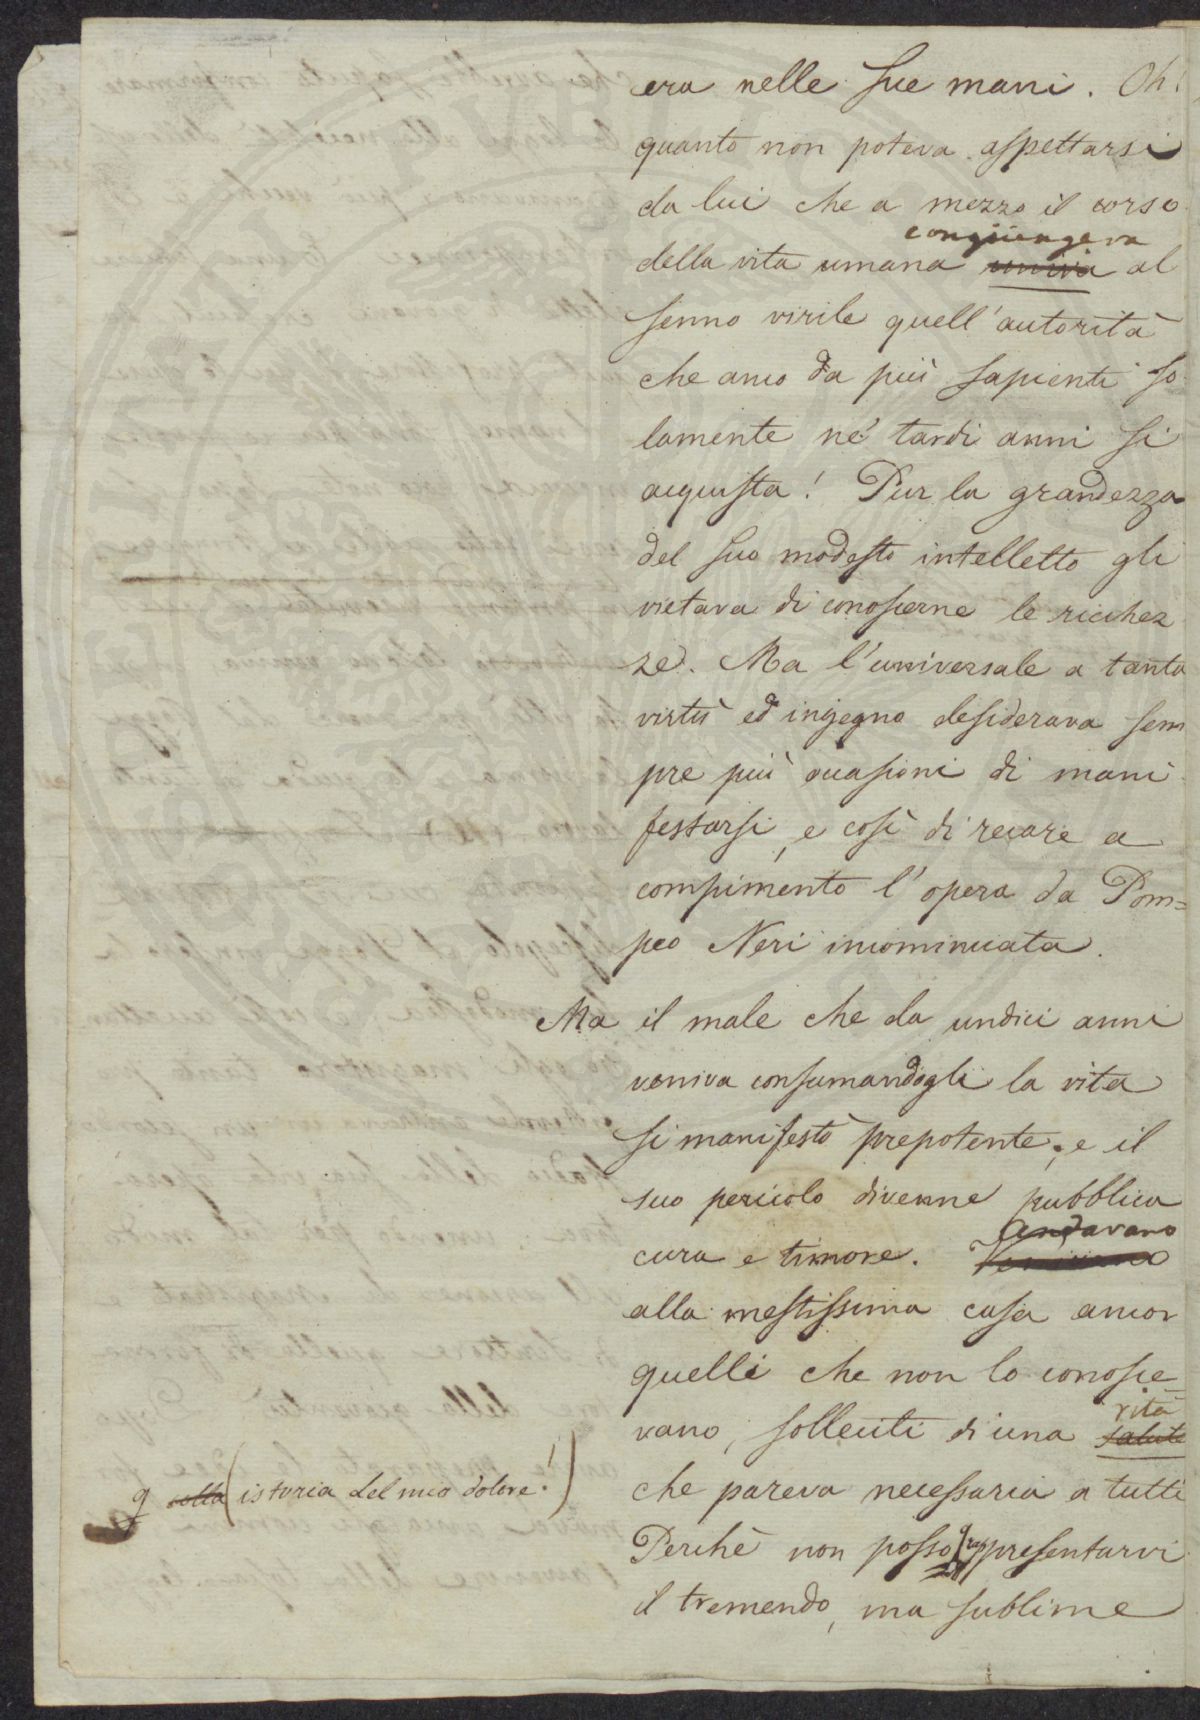 era nelle sue mani. Oh!
quanto non poteva aspettarsi
da lui che a mezzo il corso
congiungeva
della vita umana univa al
senno virile quell'autorità
che anco da più sapienti so
lamente ne' tardi anni si
acquista! Pur la grandezza
del suo modesto intelletto gli
vietava di conoscerne le ricchez
ze. Ma l'universale a tanta
virtù ed ingegno desiderava sem
pre più occasioni di mani
festarsi, e così di recare a
compimento l'opera da Pom=
peo Neri incominciata.
Ma il male che da undici anni
veniva consumandogli la vita
si manifestò prepotente, e il
suo pericolo divenne pubblica
Andavano
cura e timore. Venivano
alla mestissima casa ancor
quelli che non lo conosce=
vita
vano, solleciti di una salute
che pareva necessaria a tutti
q colla (istoria del mio dolore!)
Perchè non posso rappresentarvi
il tremendo, ma sublime